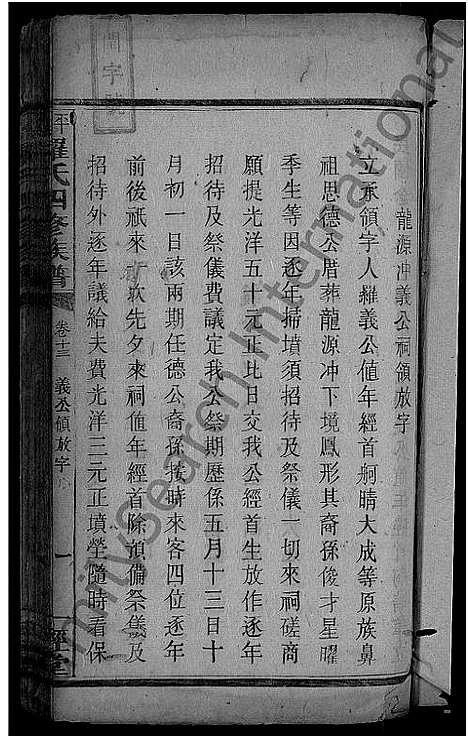 龍源冲義公祠領放字
立承領字人羅義公値年經首炯晴大成等原族鼻
祖思德公厝葬龍源冲下境鳳形其裔孫俊才星曜
季生等因逐年掃墳須招待及祭儀一切來祠磋商
願提光洋五十元正比日交我公經首生放作逐年
招待及祭儀費議定我公祭期歷係五月十三日十
月初一日該兩期任德公裔孫按時來客四位逐年
前後祇來 次先夕來祠値年經首除預備祭儀及
招待外逐年議給夫費光洋三元正墳塋隨時看保
平 羅氏四修族譜 卷十三 義公領放字 一 經堂
開字號
FamilySearch International